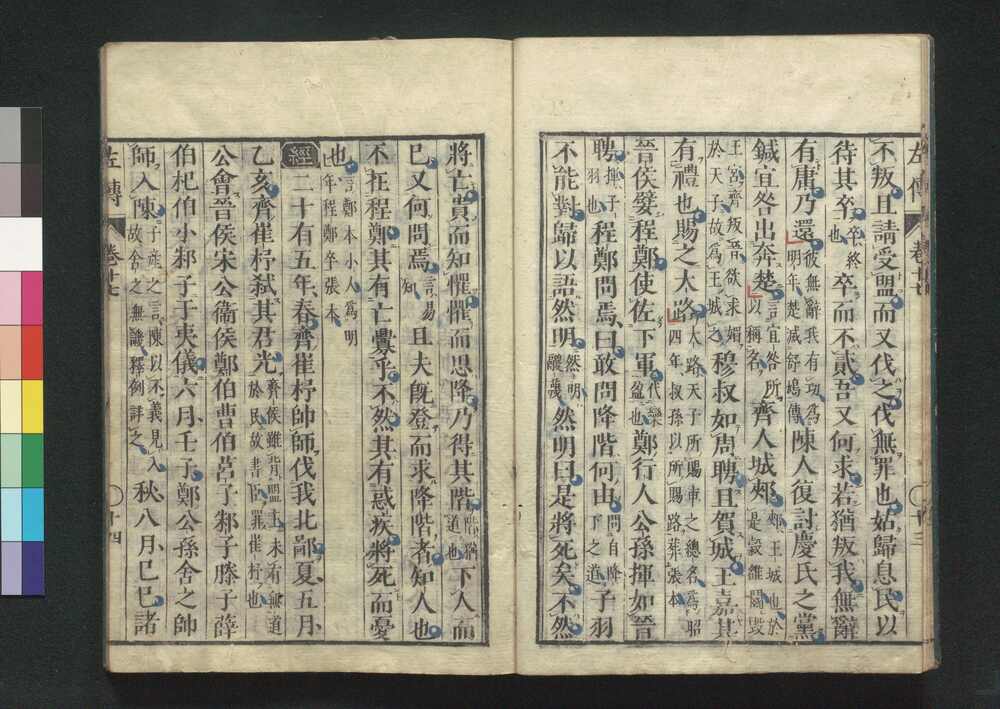 不叛且請受盟而又伐之伐無罪也姑歸息民以
待其卒卒終也卒而不貳吾又何求若猶叛我無辭
有庸乃還彼無辭我有功爲明年楚滅舒鳩傳陳人復討慶氏之黨
鍼宜咎出奔楚言宜咎所以稱名齊人城郟郟王城也於是穀雒鬭毀
王宮齊叛晉欲求媚於天子故爲王城之穆叔如周聘且賀城王嘉其
有禮也賜之大路大路天子所賜車之總名爲昭四年叔孫以所賜路葬張本
晉侯嬖程鄭使佐下軍代欒盈也鄭行人公孫揮如晉
聘揮子羽也程鄭問焉曰敢問降階何由問自降下之道子羽
不能對歸以語然明然明鬷蔑然明曰是將死矣不然
左傳 卷十七 十三
將亡貴而知懼懼而思降乃得其階階猶道也下人而
已又何問焉言易知且夫旣登而求降階者知人也
不在程鄭其有亡釁乎不然其有惑疾將死而憂
也言鄭本小人爲明年程鄭卒張本
經二十有五年春齊崔杼帥師伐我北鄙夏五月
乙亥齊崔杼弑其君光齊侯雖背盟主未有無道於民故書臣罪崔杼也
公會晉侯宋公衛侯鄭伯曹伯莒子邾子滕子薛
伯杞伯小邾子于夷儀六月壬子鄭公孫舍之帥
師入陳子產之言陳以不義見入故舍之無譏釋例詳之秋八月己巳諸
左傳 卷十七 十四